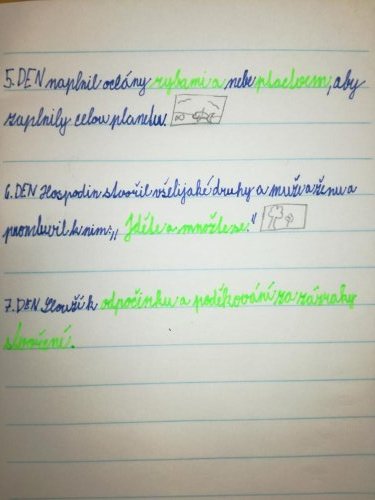 5. DEN naplnil oceány rybami a nebe ptactvem, aby
zaplnily celou planetu.
6. DEN Hospodin stvořil všelijaké druhy a muže a ženu a
promluvil k nim: „Jděte a množte se.“
7. DEN Slouží k odpočinku a poděkování za zázraky
stvoření.